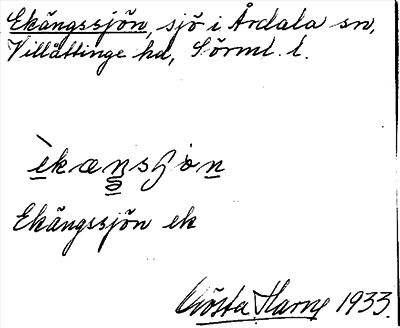 Ekängssjön, sjö i Årdala sn,
Villåttinge hd, Sörml. l.
èkænsjòn
Ekängssjön ek
Gösta Harne 1933.